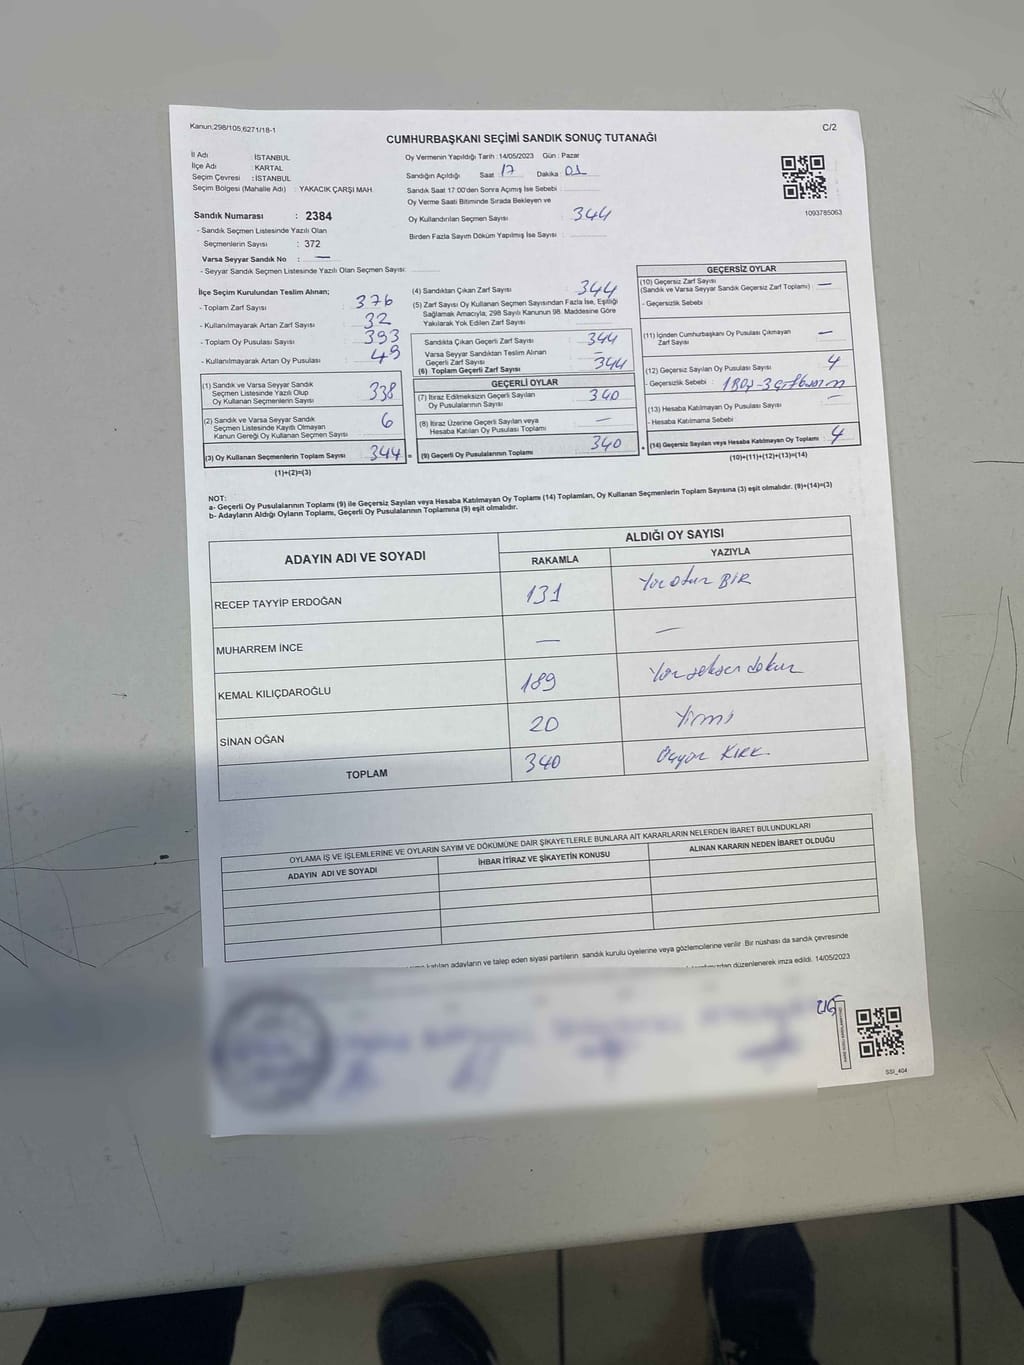 Kanun,298/105,6271/18-1
C/2
CUMHURBAŞKANI SEÇİMİ SANDIK SONUÇ TUTANAĞI
İl Adı : İSTANBUL
İlçe Adı : KARTAL
Seçim Çevresi : İSTANBUL
Seçim Bölgesi (Mahalle Adı) : YAKACIK ÇARŞI MAH.
Sandık Numarası : 2384
- Sandık Seçmen Listesinde Yazılı Olan
Seçmenlerin Sayısı : 372
Varsa Seyyar Sandık No : —
- Seyyar Sandık Seçmen Listesinde Yazılı Olan Seçmen Sayısı:
Oy Vermenin Yapıldığı Tarih :14/05/2023 Gün : Pazar
Sandığın Açıldığı Saat 17 Dakika 01
Sandık Saat 17:00'den Sonra Açımış İse Sebebi :
Oy Verme Saati Bitiminde Sırada Bekleyen ve
Oy Kullandırılan Seçmen Sayısı : 344
Birden Fazla Sayım Döküm Yapılmış İse Sayısı :
1093785063
İlçe Seçim Kurulundan Teslim Alınan;
- Toplam Zarf Sayısı : 376
- Kullanılmayarak Artan Zarf Sayısı : 32
- Toplam Oy Pusulası Sayısı : 393
- Kullanılmayarak Artan Oy Pusulası : 49
(1) Sandık ve Varsa Seyyar Sandık
Seçmen Listesinde Yazılı Olup
Oy Kullanan Seçmenlerin Sayısı : 338
(2) Sandık ve Varsa Seyyar Sandık
Seçmen Listesinde Kayıtlı Olmayan
Kanun Gereği Oy Kullanan Seçmen Sayısı : 6
(3) Oy Kullanan Seçmenlerin Toplam Sayısı : 344 =
(1)+(2)=(3)
(4) Sandıktan Çıkan Zarf Sayısı : 344
(5) Zarf Sayısı Oy Kullanan Seçmen Sayısından Fazla İse, Eşitliği
Sağlamak Amacıyla, 298 Sayılı Kanunun 98. Maddesine Göre
Yakılarak Yok Edilen Zarf Sayısı :
Sandıkta Çıkan Geçerli Zarf Sayısı : 344
Varsa Seyyar Sandıktan Teslim Alınan
Geçerli Zarf Sayısı : —
(6) Toplam Geçerli Zarf Sayısı : 344
GEÇERLİ OYLAR
(7) İtiraz Edilmeksizin Geçerli Sayılan
Oy Pusulalarının Sayısı : 340
(8) İtiraz Üzerine Geçerli Sayılan veya
Hesaba Katılan Oy Pusulası Toplamı : —
(9) Geçerli Oy Pusulalarının Toplamı : 340 +
GEÇERSİZ OYLAR
(10) Geçersiz Zarf Sayısı
(Sandık ve Varsa Seyyar Sandık Geçersiz Zarf Toplamı) : —
- Geçersizlik Sebebi :
(11) İçinden Cumhurbaşkanı Oy Pusulası Çıkmayan
Zarf Sayısı : —
(12) Geçersiz Sayılan Oy Pusulası Sayısı : 4
- Geçersizlik Sebebi :
(13) Hesaba Katılmayan Oy Pusulası Sayısı : —
- Hesaba Katılmama Sebebi :
(14) Geçersiz Sayılan veya Hesaba Katılmayan Oy Toplamı : 4
(10)+(11)+(12)+(13)=(14)
NOT:
a- Geçerli Oy Pusulalarının Toplamı (9) ile Geçersiz Sayılan veya Hesaba Katılmayan Oy Toplamı (14) Toplamları, Oy Kullanan Seçmenlerin Toplam Sayısına (3) eşit olmalıdır. (9)+(14)=(3)
b- Adayların Aldığı Oyların Toplamı, Geçerli Oy Pusulalarının Toplamına (9) eşit olmalıdır.
ADAYIN ADI VE SOYADI
ALDIĞI OY SAYISI
RAKAMLA YAZIYLA
RECEP TAYYİP ERDOĞAN 131 Yüz otuz BİR
MUHARREM İNCE — —
KEMAL KILIÇDAROĞLU 189 Yüz seksen dokuz
SİNAN OĞAN 20 Yirmi
TOPLAM 340 Üçyüz KIRK
OYLAMA İŞ VE İŞLEMLERİNE VE OYLARIN SAYIM VE DÖKÜMÜNE DAİR ŞİKAYETLERLE BUNLARA AİT KARARLARIN NELERDEN İBARET BULUNDUKLARI
ADAYIN ADI VE SOYADI İHBAR İTİRAZ VE ŞİKAYETİN KONUSU ALINAN KARARIN NEDEN İBARET OLDUĞU
katılan adayların ve talep eden siyasi partilerin sandık kurulu üyelerine veya gözlemcilerine verilir. Bir nüshası da sandık çevresinde
düzenlenerek imza edildi. 14/05/2023
SSI_404